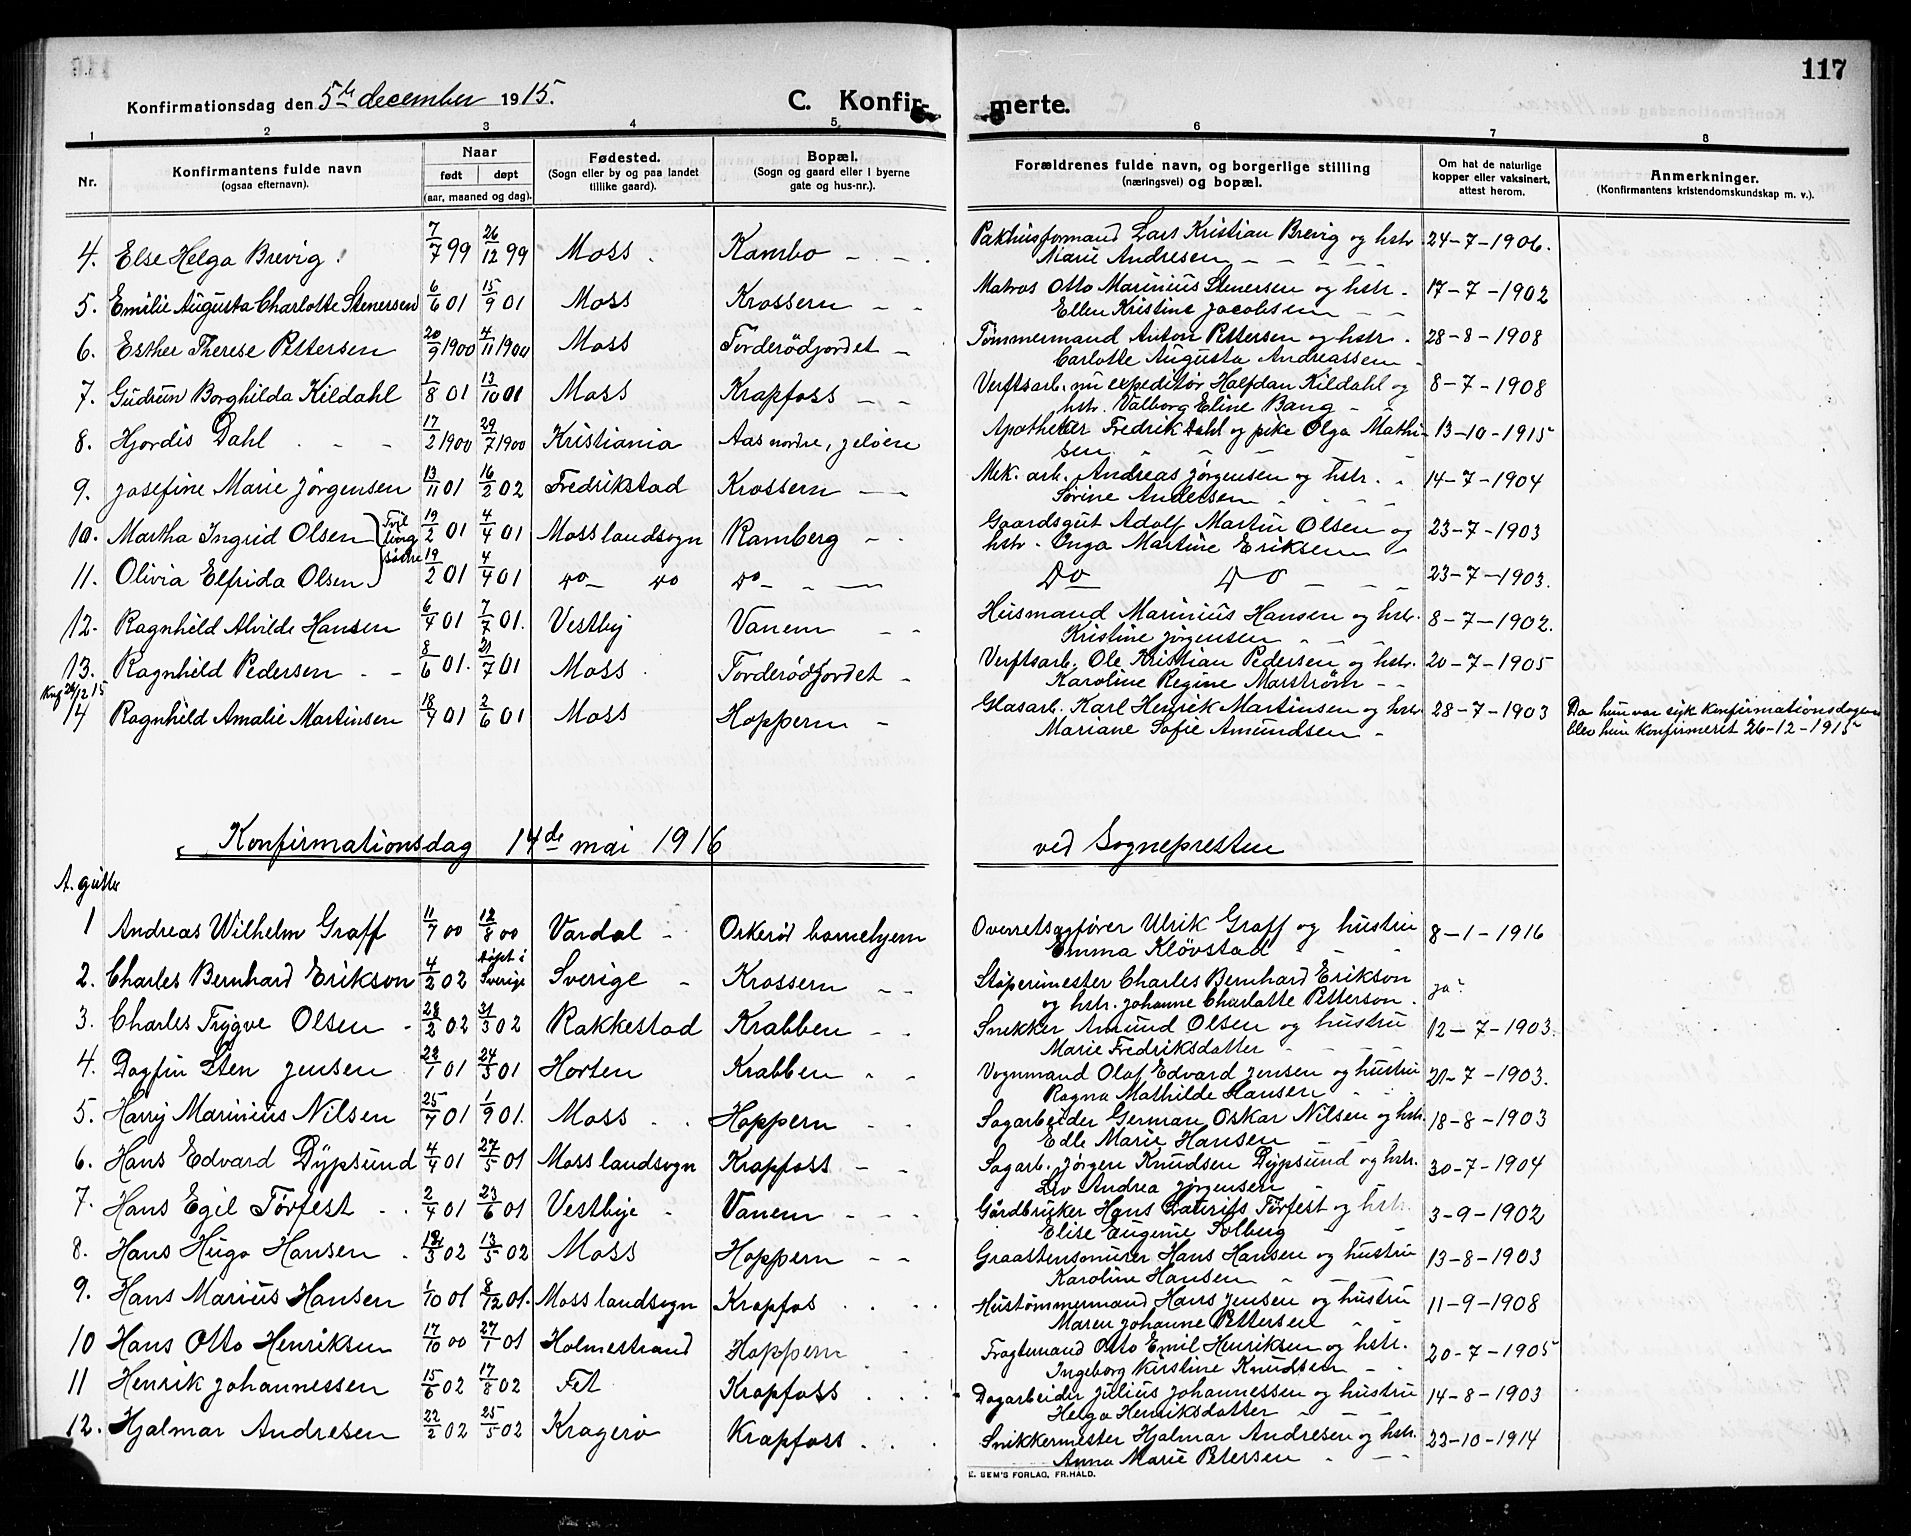 117
Konfirmationsdag den 5te december 1915.
C. Konfirmerte.
1 2 3 4 5 6 7 8
Nr.
Konfirmantens fulde navn
(ogsaa efternavn).
Naar
født døpt
(aar, maaned og dag).
Fødested.
(Sogn eller by og paa landet
tillike gaard).
Bopæl.
(Sogn og gaard eller i byerne
gate og hus-nr.).
Forældrenes fulde navn, og borgerlige stilling
(næringsvei) og bopæl.
Om hat de naturlige
kopper eller vaksinert,
attest herom.
Anmerkninger.
(Konfirmantens kristendomskundskap m. v.).
4. Else Helga Brevig. 7/7 99 26/12 99 Moss Kambo Pakhusformand Lars Kristian Brevig og hstr. 24-7-1906.
Marie Andresen
5. Emilie Augusta Charlotte Stenersen 6/6 01 15/9 01 Moss Krossern Matros Otto Marinius Stenersen og hstr. 17-7-1902
Ellen Kristine Jacobsen
6. Esther Therese Pettersen 20/9 1900 4/11 1900 Moss Torderödjordet Tømmermand Anton Pettersen og hstr. 28-8-1908
Carlotte Augusta Andreassen
7. Gudrun Borghilda Kildahl 1/8 01 13/10 01 Moss Krapfoss Verftsarb. nu expeditör Halfdan Kildahl og 8-7-1908
hstr. Valborg Eline Bang
8. Hjordis Dahl 17/2 1900 29/7 1900 Kristiania Aas nordre, jelöen Apotheker Fredrik Dahl og pike Olga Mathi- 13-10-1915
sen
9. Josefine Marie Jörgensen 13/11 01 16/2 02 Fredrikstad Krossern Mek. arb. Andreas Jörgensen og hstr. 14-7-1904
Sörine Andersen
10. Martha Ingrid Olsen 19/2 01 4/4 01 Moss landsogn Ramberg Gaardsgut Adolf Martin Olsen og 23-7-1903
Tvil
ling
söstre
hstr. Inga Martine Eriksen
11. Olivia Elfrida Olsen 19/2 01 4/4 01 do do do Do Do 23-7-1903.
12. Ragnhild Alvilde Hansen 6/4 01 7/7 01. Vestby Vanem Husmand Marinius Hansen og hstr. 8-7-1902.
Kristine Jörgensen
13. Ragnhild Pedersen 8/6 01. 21/7 01 Moss Torderödjordet Verftsarb. Ole Kristian Pedersen og hstr. 20-7-1905
Karoline Regine Marström
Knf 26/12 15
14 Ragnhild Amalie Martinsen 18/4 01 2/6 01 Moss Hoppern Glasarb. Karl Henrik Martinsen og hstr 28-7-1903 Da hun var syk konfirmationsdagen
Mariane Sofie Amundsen blev hun konfirmeret 26-12-1915
Konfirmationsdag 14de mai 1916 ved Sognepresten
A. gutter
1 Andreas Wilhelm Graff 11/7 00 12/8 00 Vardal Orkeröd barnehjem Overretssagförer Ulrik Graff og hustru 8-1-1916
Emma Klövstad
2. Charles Bernhard Erikson 4/2 02 döpt i Sverige Sverige Krossern Støperimester Charles Bernhard Erikson ja
og hstr. Johanne Charlotte Petterson.
3. Charles Trygve Olsen 28/2 02 31/3 02 Rakkestad Krabben Snekker Amund Olsen og hustru 12-7-1903.
Marie Fredriksdatter
4. Dagfin Sten Jensen 23/1 01 24/3 01 Horten Krabben Vognmand Olaf Edvard Jensen og hustru 21-7-1903.
Ragna Mathilde Hansen
5. Harry Marinius Nilsen 25/7 01 1/9 01. Moss Hoppern Sagarbeider German Oskar Nilsen og hstr. 18-8-1903
Edle Marie Hansen
6. Hans Edvard Dypsund 4/4 01 27/5 01 Moss landsogn Krapfoss Sagarb. Jörgen Knudsen Dypsund og hstr. 30-7-1904
Andrea Jörgensen
7. Hans Egil Törfest 2/4 01 23/6 01 Vestbye Vanem Gårdbruker Hans Laurits Törfest og hstr. 3-9-1902
Elise Eugenie Solberg
8. Hans Hugo Hansen 3 02 13/5 02 Moss Hoppern Graastensmurer Hans Hansen og hustru 13-8-1903
Karoline Hansen
9. Hans Marius Hansen 1/10 01 8/12 01. Moss landsogn Krapfos Hustömmermand Hans Jensen og hustru 11-9-1908
Maren Johanne Pettersen
10 Hans Otto Henriksen 17/10 00 27/1 01 Holmestrand Hoppern Fragtemand Otto Emil Henriksen og hstr. 20-7-1905
Ingeborg Kirstine Knudsen
11 Henrik Johannessen 15/6 02 17/8 02 Fet Krapfoss Dagarbeider Julius Johannessen og hustru 14-8-1903
Helga Henriksdatter
12. Hjalmar Andresen 22/2 02 25/5 02 Kragerö Krapfoss. Snikkermester Hjalmar Andresen og hstr. 23-10-1914
Anna Marie Petersen
E. SEM'S FORLAG, FR.HALD.